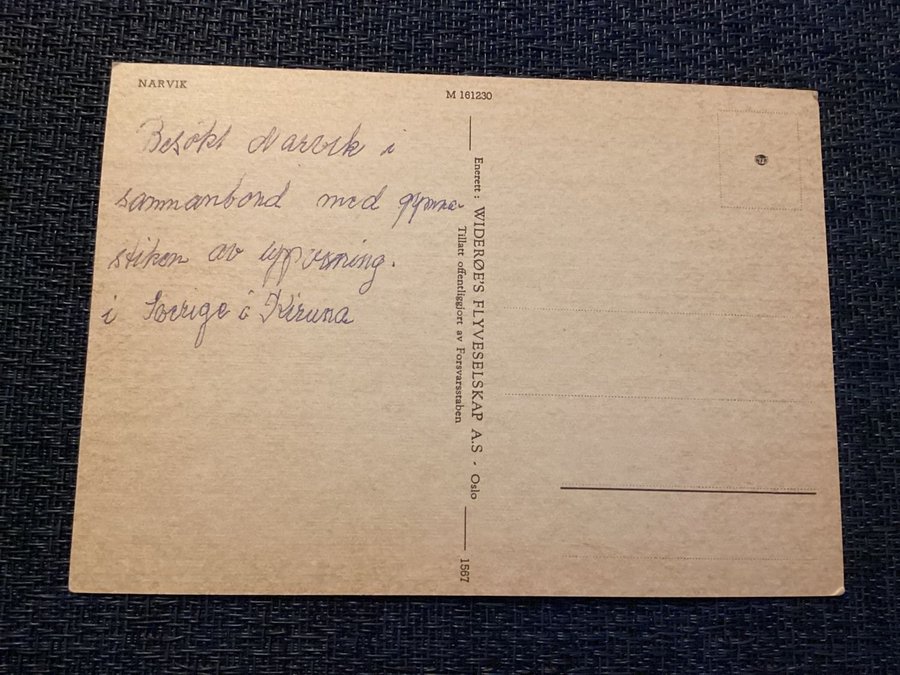 NARVIK
M 161230
Besökt Narvik i
sammanbond med gymna
stiken av uppvsning.
i Sverige i Kiruna
Enerett: WIDERØE'S FLYVESELSKAP A.S - Oslo
Tillatt offentliggjort av Forsvarsstaben
1567